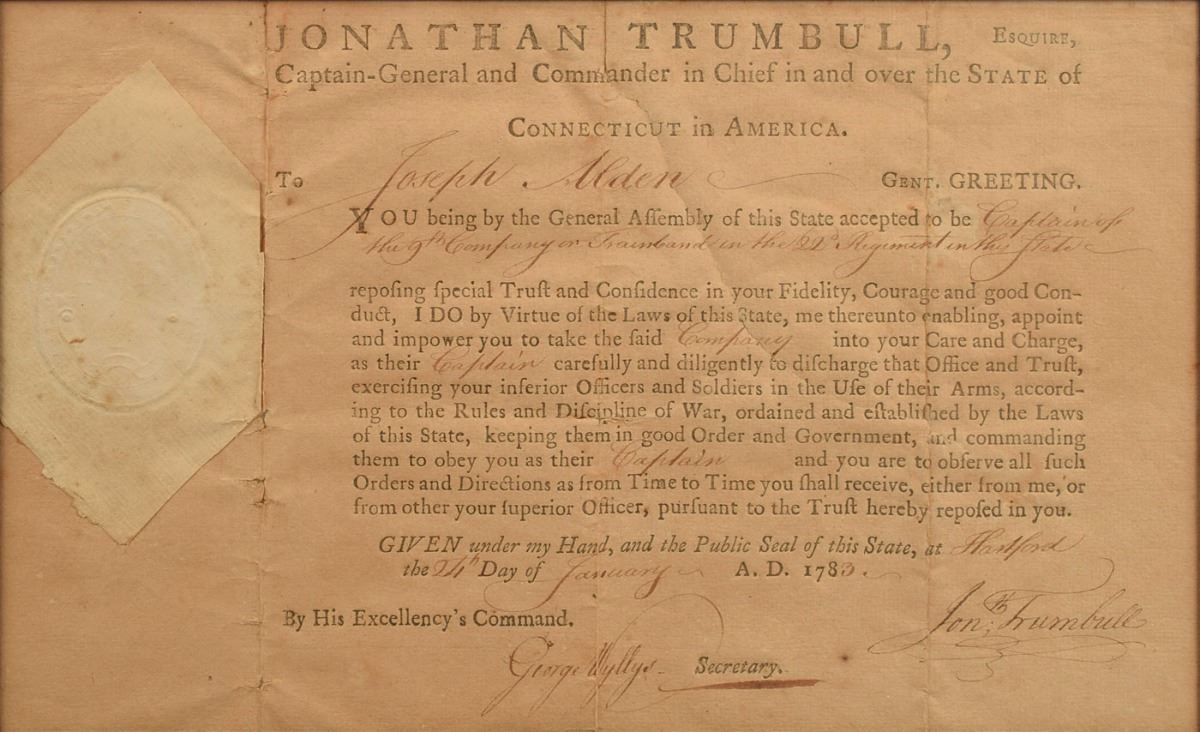 JONATHAN TRUMBULL, ESQUIRE,
Captain-General and Commander in Chief in and over the STATE of
CONNECTICUT in AMERICA.
To Joseph Alden GENT. GREETING.
YOU being by the General Aſſembly of this State accepted to be Captain of
the 9th Company or Trainband in the 22d Regiment in this State
repoſing ſpecial Truſt and Confidence in your Fidelity, Courage and good Con-
duct, I DO by Virtue of the Laws of this State, me thereunto enabling, appoint
and impower you to take the ſaid Company into your Care and Charge,
as their Captain carefully and diligently to diſcharge that Office and Truſt,
exerciſing your inferior Officers and Soldiers in the Uſe of their Arms, accord-
ing to the Rules and Diſcipline of War, ordained and eſtabliſhed by the Laws
of this State, keeping them in good Order and Government, and commanding
them to obey you as their Captain and you are to obſerve all ſuch
Orders and Directions as from Time to Time you ſhall receive, either from me, or
from other your ſuperior Officer, purſuant to the Truſt hereby repoſed in you.
GIVEN under my Hand, and the Public Seal of this State, at Hartford
the 24th Day of January A. D. 1783.
By His Excellency's Command.
Jonth Trumbull
George Wyllys Secretary.